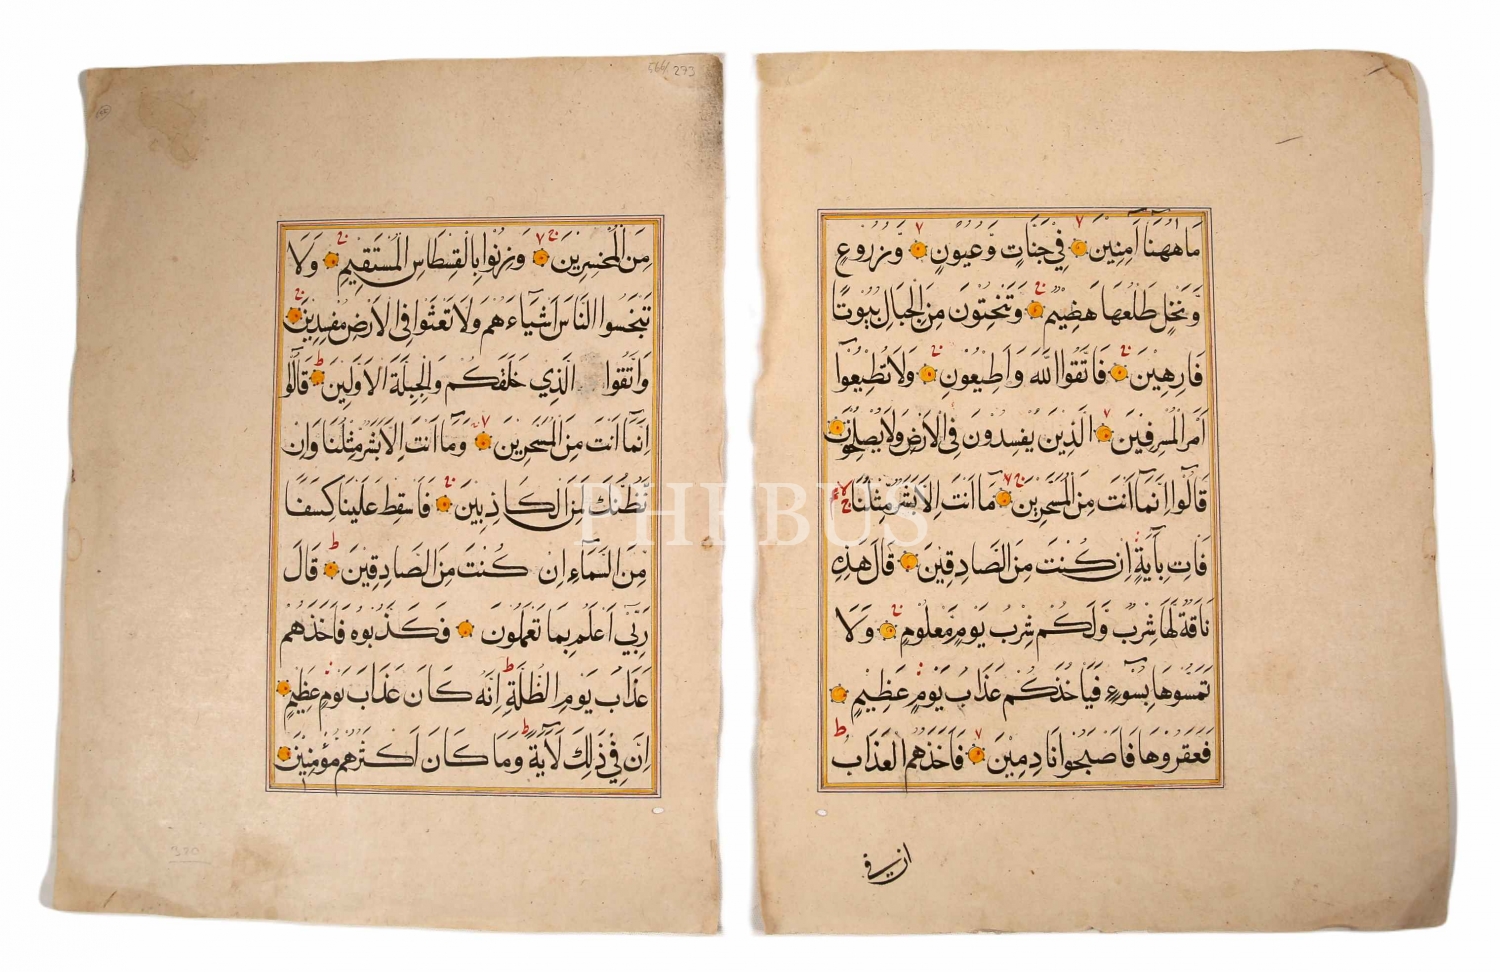 مَا هٰهُنَا آمِنِينَ فِي جَنَّاتٍ وَّعُيُونٍ وَّزُرُوعٍ
وَّنَخْلٍ طَلْعُهَا هَضِيمٌ وَتَنْحِتُونَ مِنَ الْجِبَالِ بُيُوتًا
فَارِهِينَ فَاتَّقُوا اللّٰهَ وَاَطِيعُونِ وَلَا تُطِيعُوآ
اَمْرَ الْمُسْرِفِينَ الَّذِينَ يُفْسِدُونَ فِي الْاَرْضِ وَلَا يُصْلِحُونَ
قَالُوآ اِنَّمَآ اَنْتَ مِنَ الْمُسَحَّرِينَ مَآ اَنْتَ اِلَّا بَشَرٌ مِّثْلُنَا
فَاْتِ بِاٰيَةٍ اِنْ كُنْتَ مِنَ الصَّادِقِينَ قَالَ هٰذِهِ
نَاقَةٌ لَّهَا شِرْبٌ وَّلَكُمْ شِرْبُ يَوْمٍ مَّعْلُومٍ وَلَا
تَمَسُّوهَا بِسُوٓءٍ فَيَاْخُذَكُمْ عَذَابُ يَوْمٍ عَظِيمٍ
فَعَقَرُوهَا فَاَصْبَحُوا نَادِمِينَ فَاَخَذَهُمُ الْعَذَابُ
ان في
273
مِنَ الْمُخْسِرِينَ وَزِنُوا بِالْقِسْطَاسِ الْمُسْتَقِيمِ وَلَا
تَبْخَسُوا النَّاسَ اَشْيَآءَهُمْ وَلَا تَعْثَوْا فِي الْاَرْضِ مُفْسِدِينَ
وَاتَّقُوا الَّذِي خَلَقَكُمْ وَالْجِبِلَّةَ الْاَوَّلِينَ قَالُوآ
اِنَّمَآ اَنْتَ مِنَ الْمُسَحَّرِينَ وَمَآ اَنْتَ اِلَّا بَشَرٌ مِّثْلُنَا وَاِنْ
نَّظُنُّكَ لَمِنَ الْكَاذِبِينَ فَاَسْقِطْ عَلَيْنَا كِسَفًا
مِّنَ السَّمَآءِ اِنْ كُنْتَ مِنَ الصَّادِقِينَ قَالَ
رَبِّيٓ اَعْلَمُ بِمَا تَعْمَلُونَ فَكَذَّبُوهُ فَاَخَذَهُمْ
عَذَابُ يَوْمِ الظُّلَّةِ اِنَّهُ كَانَ عَذَابَ يَوْمٍ عَظِيمٍ
اِنَّ فِي ذٰلِكَ لَاٰيَةً وَمَا كَانَ اَكْثَرُهُمْ مُّؤْمِنِينَ
370
PHEBUS